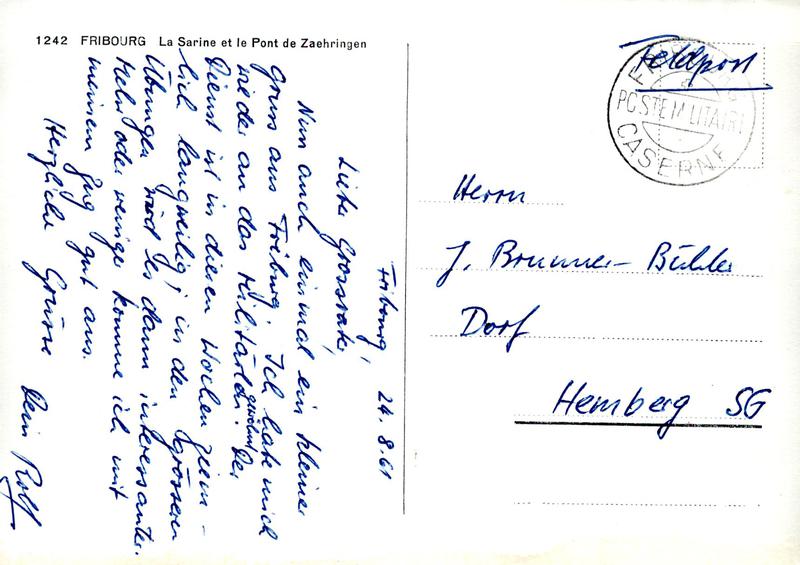 1242 FRIBOURG La Sarine et le Pont de Zaehringen
Fribourg, 24.8.61
Lieber Grossvater,
Nun auch einmal ein kleiner
Gruss aus Fribourg. Ich habe mich
wieder an das Militärleben gewöhnt. Der
Dienst ist in diesen Wochen ziem-
lich langweilig; in den grösseren
Übungen wird es dann interessanter.
Mehr oder weniger komme ich mit
meinem Zug gut aus.
Herzliche Grüsse
Dein Rolf
Feldpost
POSTE MILITAIRE
CASERNE
Herrn
J. Brunner-Bühler
Dorf
Hemberg SG